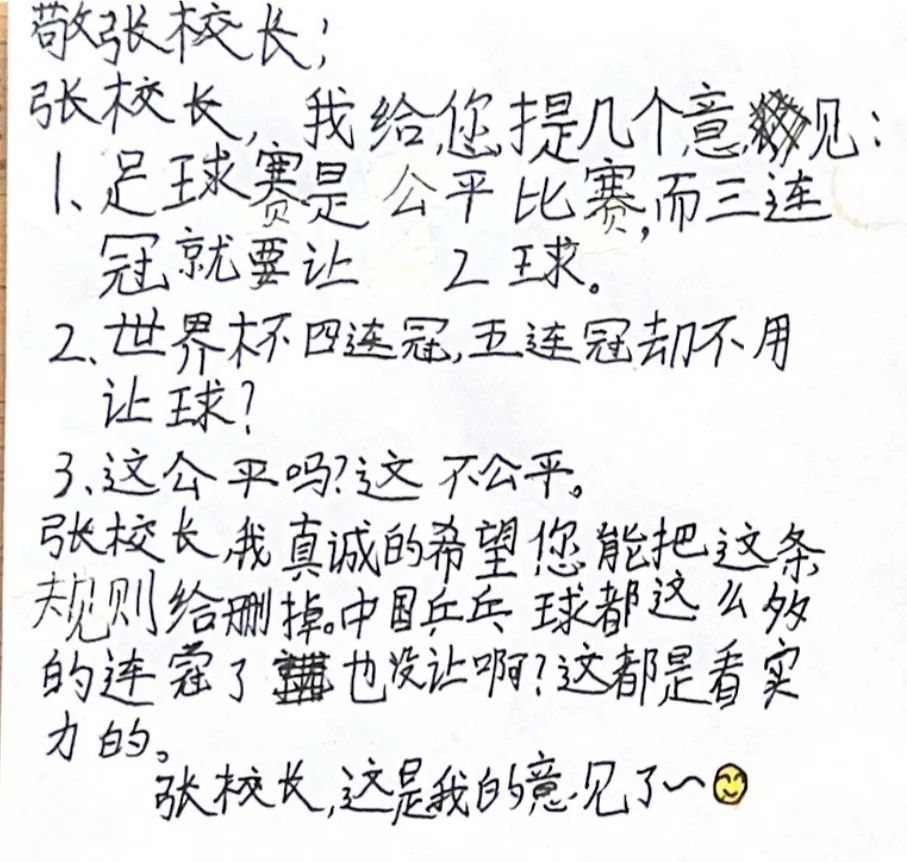 敬张校长;
张校长,我给您提几个意见:
1、足球赛是公平比赛,而三连
冠就要让 2球。
2、世界杯四连冠,五连冠却不用
让球?
3、这公平吗?这不公平。
张校长,我真诚的希望您能把这条
规则给删掉。中国乒乓球都这么多
的连冠了也没让啊?这都是看实
力的。
张校长,这是我的意见了~